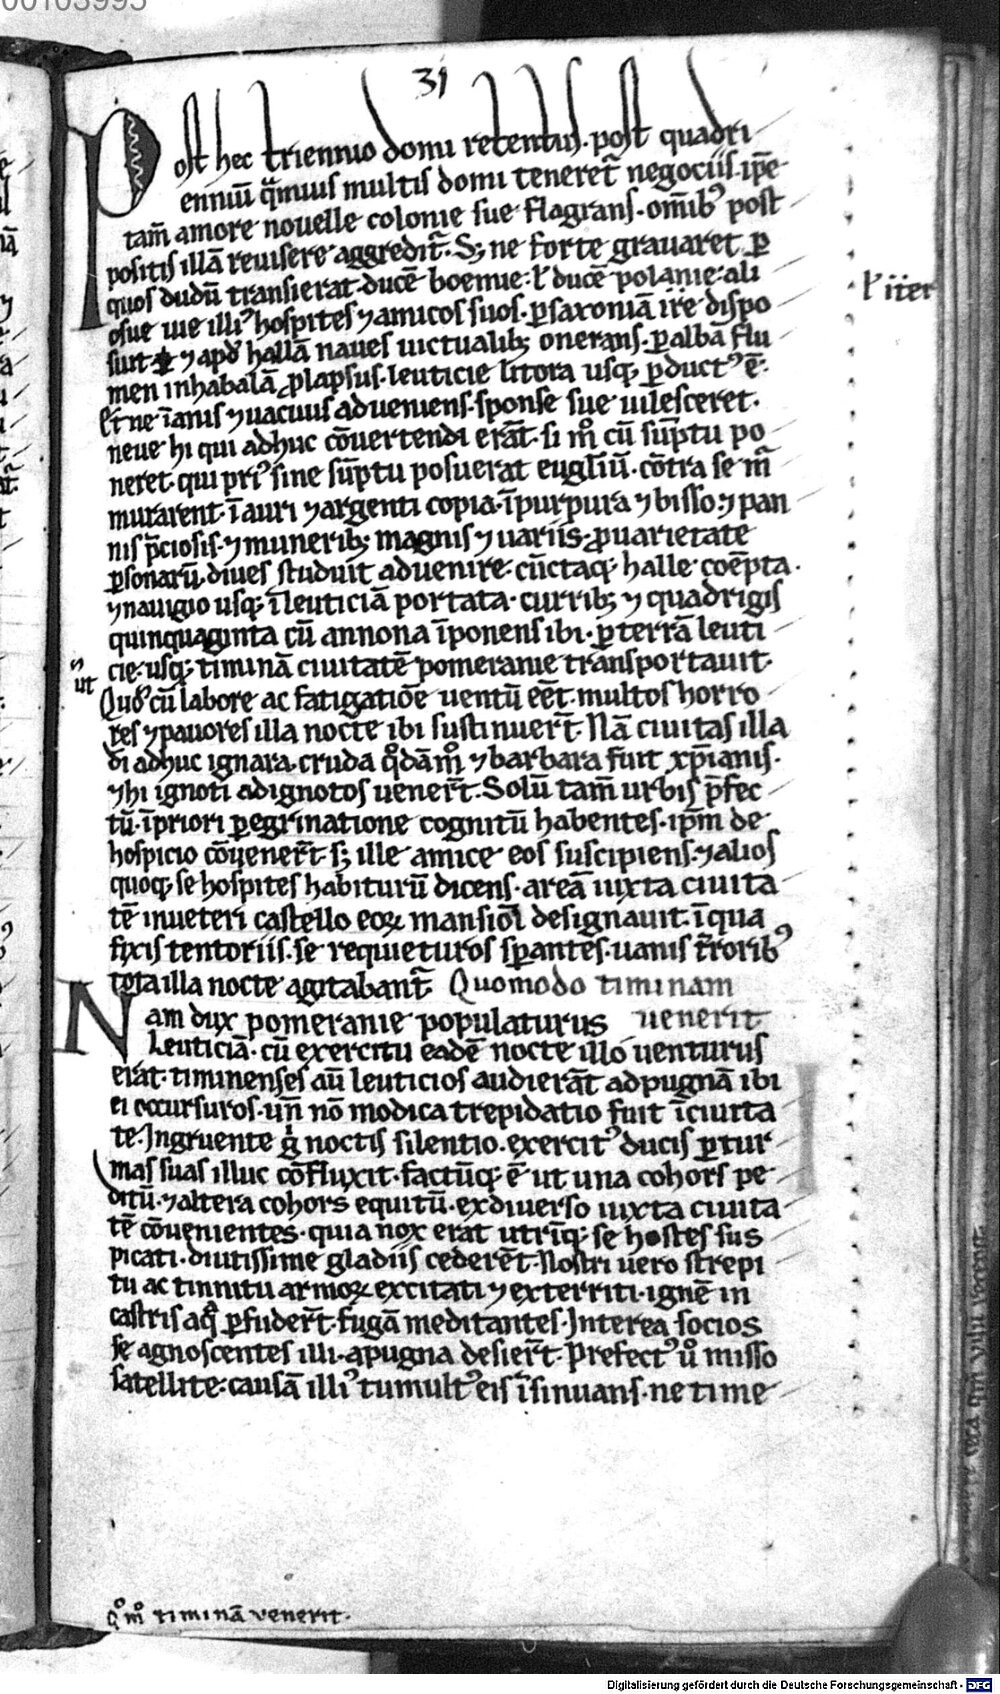 00103995
31
Post hec triennio domi retentus. post quadri
enniū q̄muis multis domi teneret᷑ negociis. ip̄e
tam̄ amore nouelle colonie sue flagrans. om̄ibꝰ post
positis illā reuisere aggredit᷑. Sꝫ ne forte grauaret ꝑ
quos dudū transierat. ducē boemie. ł ducē polanie. ali
l' iter
osue uie illiꝰ hospites ⁊ amicos suos. ꝑ saxoniā ire dispo
suit ⁊ apd' hallā naues uictualibꝫ onerans. ꝑ albā flu
men inhabalā ꝓlapsus. leuticie litora usqꝫ ꝑductꝰ ē.
Et ne īanis ⁊ uacuus adueniens. sponse sue uilesceret.
neue hi qui adhuc cōuertendi erāt. si mͦ cū sūptu po
neret. qui priꝰ sine sūptu posuerat eugl̄iū. cōtra se m̄
murarent. ī auri ⁊ argenti copia. ī purpura ⁊ bisso. ⁊ pan
nis p̄ciosis. ⁊ muneribꝫ magnis ⁊ uariis. ꝓ uarietate
ꝑsonarū. diues studuit aduenire. cūctaqꝫ halle coēpta.
⁊ nauigio usqꝫ ī leuticiā portata. curribꝫ ⁊ quadrigis
quinquaginta cū annona īponens ibi. ꝑ terrā leuti
cie. usqꝫ timinā ciuitatē pomeranie transportauit.
ut
Quo cū labore ac fatigatiōe uentū eēt. multos horro
res ⁊ pauores illa nocte ibi sustinuer̄t. Nā ciuitas illa
di adhuc ignara. cruda qͦdāmͦ ⁊ barbara fuit xp̄ianis.
⁊ hi ignoti ad ignotos uener̄t. Solū tam̄ urbis p̄fec
tū. ī priori ꝑegrinatione cognitū habentes. ip̄m de
hospicio cōuener̄t. sꝫ ille amice eos suscipiens. ⁊ alios
quoqꝫ se hospites habiturū dicens. areā iuxta ciuita
tē in ueteri castello eoꝝ mansiōi designauit. ī qua
fixis tentoriis. se requieturos sꝑantes. uanis t̄roribꝰ
tota illa nocte agitabant᷑. Quomodo timinam
uenerit.
Nam dux pomeranie populaturus
leuticiā. cū exercitu eadē nocte illo uenturus
erat. timinenses aū leuticios audierāt ad pugnā ibi
ei occursuros. un̄ nō modica trepidatio fuit ī ciuita
te. Ingruente g̊ noctis silentio. exercitꝰ ducis ꝑ tur
mas suas illuc cōfluxit. factūqꝫ ē ut una cohors pe
ditū. ⁊ altera cohors equitū. ex diuerso iuxta ciuita
tē cōuenientes. quia nox erat utriqꝫ se hostes sus
picati. diutissime gladiis cederēt. Nostri uero strepi
tu ac tinnitu armoꝝ excitati ⁊ exterriti. ignē in
castris aq̄ ꝑfuder̄t. fugā meditantes. Interea socios
se agnoscentes illi. a pugna desier̄t. Prefectꝰ uͦ misso
satellite. causā illiꝰ tumultꝰ eis īsinuans. ne time
qͦmͦ timinā venerit.
Digitalisierung gefördert durch die Deutsche Forschungsgemeinschaft - DFG